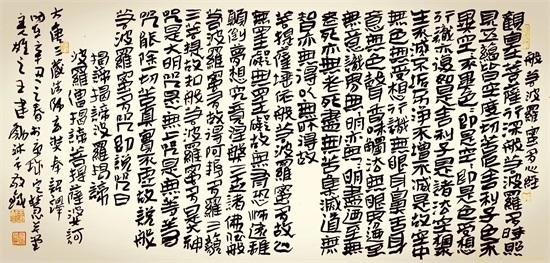 般若波羅蜜多心經
觀自在菩薩行深般若波羅蜜多時照
見五蘊皆空度一切苦厄舍利子色不
異空空不異色色即是空空即是色受想
行識亦復如是舍利子是諸法空想不
生不滅不垢不淨不增不減是故空中
無色無受想行識無眼耳鼻舌身
意無色聲香味觸法無眼界乃至
無意識界無無明亦無無明盡乃至無
老死亦無老死盡無苦集滅道無
智亦無得以無所得故
菩提薩埵依般若波羅蜜多故心
無罣礙無罣礙故無有恐怖遠離
顛倒夢想究竟涅槃三世諸佛依般
若波羅蜜多故得阿耨多羅三藐
三菩提故知般若波羅蜜多是大神
咒是大明咒是無上咒是無等等
咒能除一切苦真實不虛故說般
若波羅蜜多咒即說咒曰
揭諦揭諦波羅揭諦
波羅僧揭諦菩提薩婆訶
大唐三藏法師玄奘奉詔譯
辛丑之春
王建